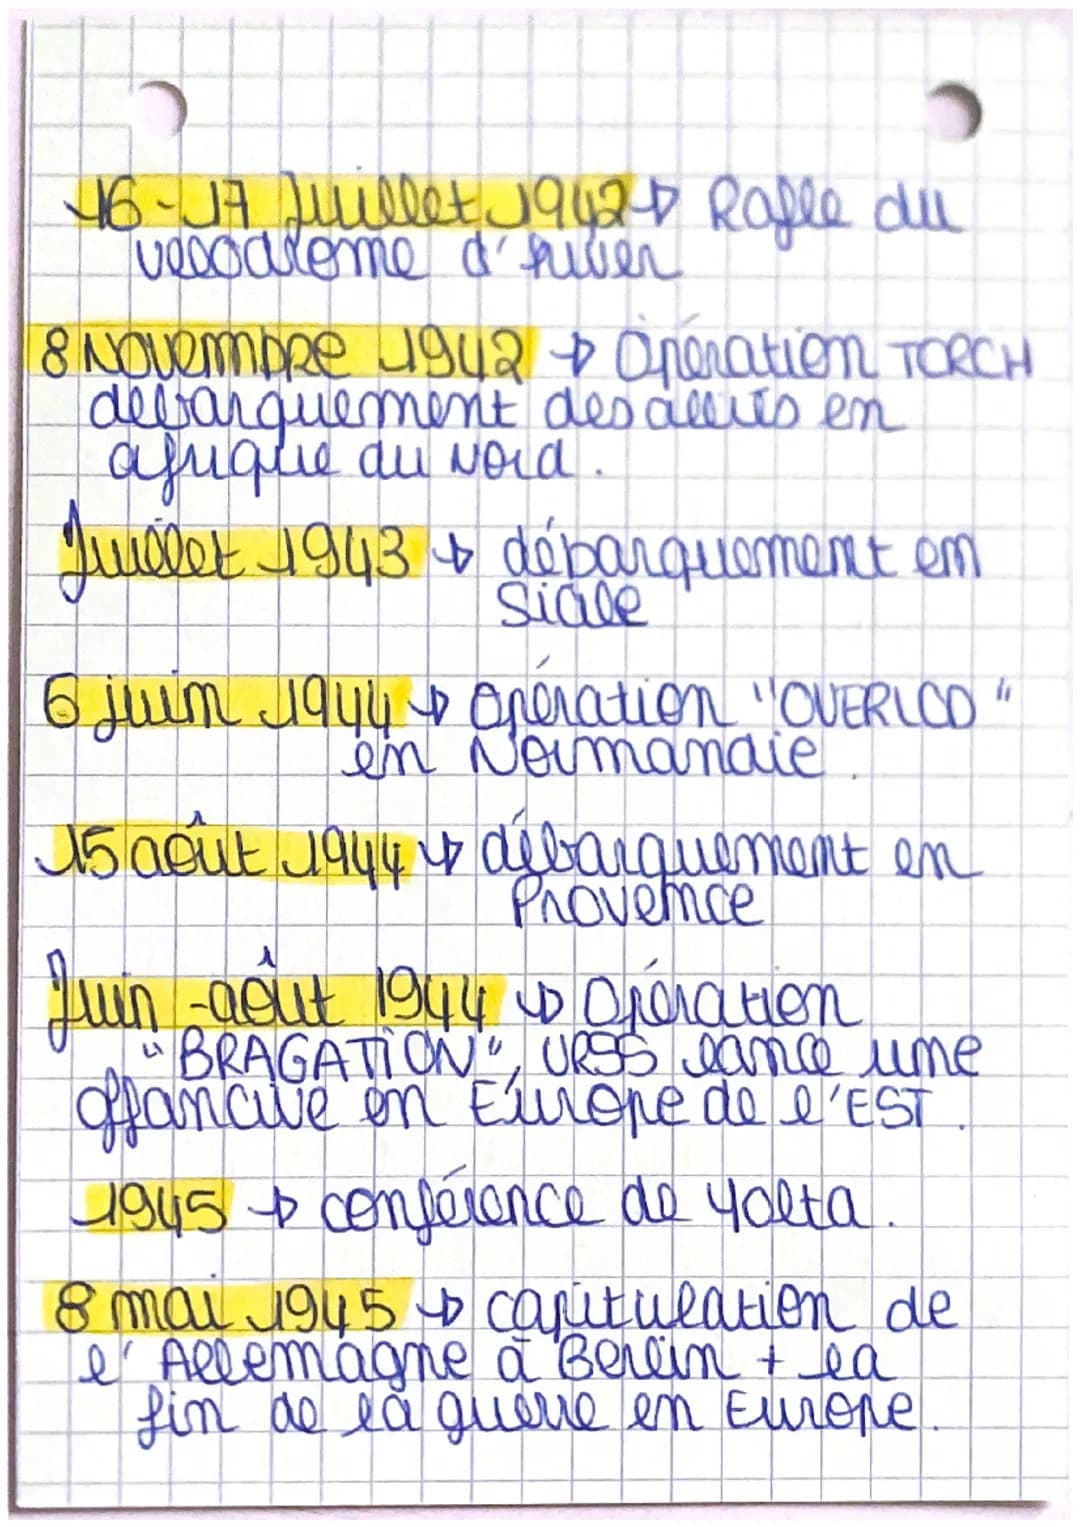 16-17 Juillet 1942 → Rafle du
velodrome d'hiver
8 Novembre 1942 → Opération TORCH
débarquement des alliés en
afrique du Nord.
Juillet 1943 → débarquement en
Sicile
6 juin 1944 → opération "OVERLOD"
en Normandie.
15 août 1944 → débarquement en
Provence
Juin-août 1944 → Opération
"BRAGATION", URSS lance une
offancive en Europe de l'EST.
1945 → conférence de Yalta.
8 mai 1945 → capitulation de
l'Allemagne à Berlin + la
fin de la guerre en Europe.